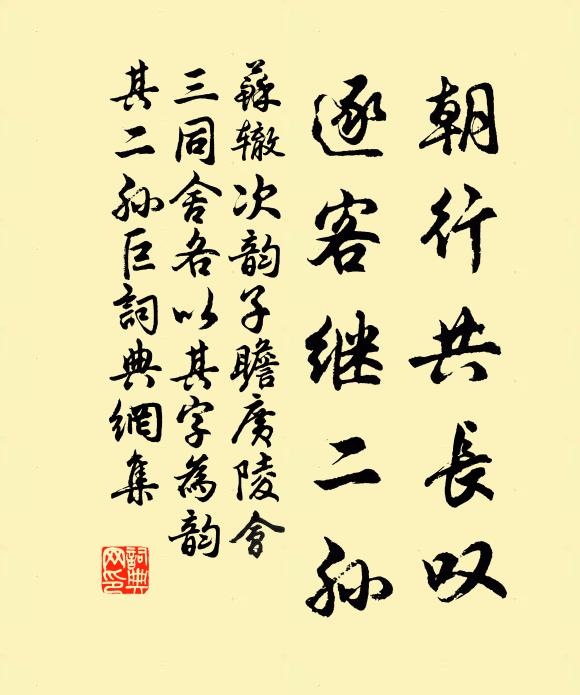 朝行共長叹
逐客继二孙
蘇辙次韵子瞻廣陵會
三同舍各以其字為韵
其二孙巨詞典網集
詞典网印